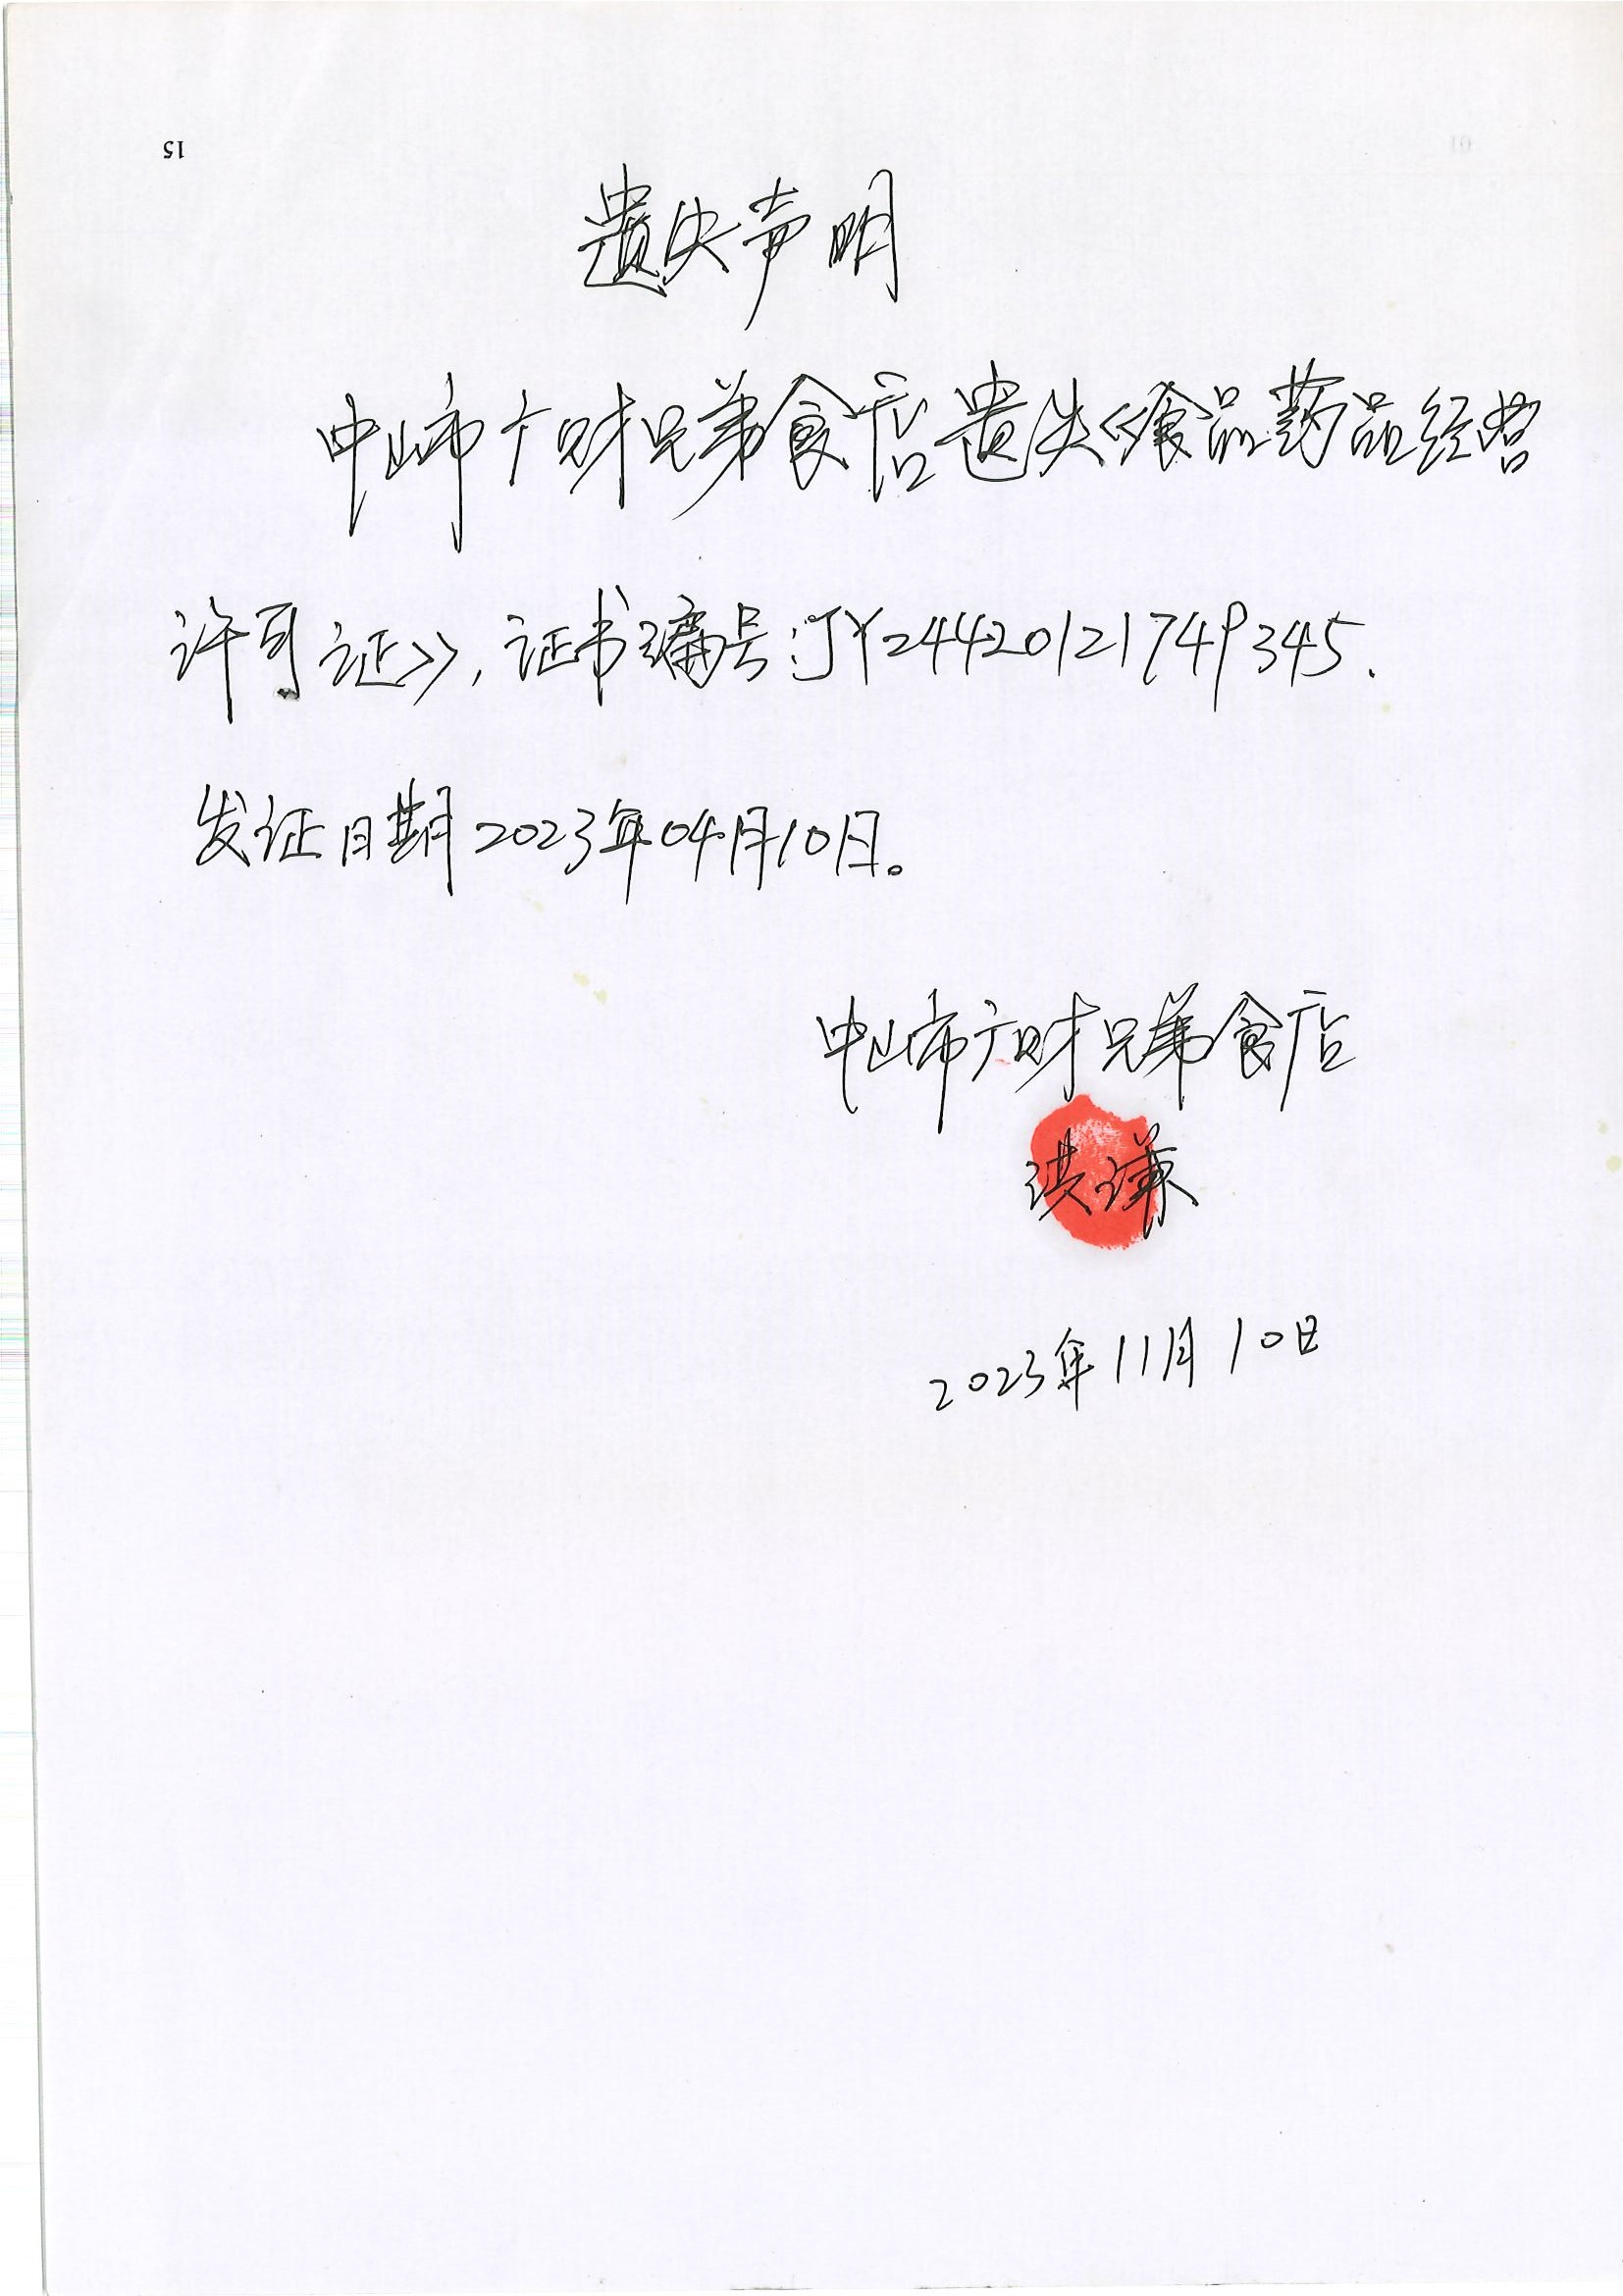 15
遗失声明
中山市广财兄弟食店遗失《食品药品经营
许可证》,证书编号:JY24420121749345.
发证日期2023年04月10日。
中山市广财兄弟食店
洪谦
2023年11月10日